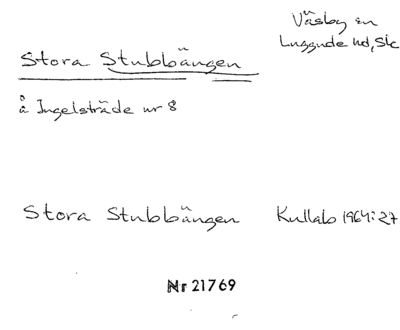 Väsby sn
Luggude hd, Sk
Stora Stubbängen
å Ingelsträde nr 8
Stora Stubbängen Kullab 1964:27
Nr 21769